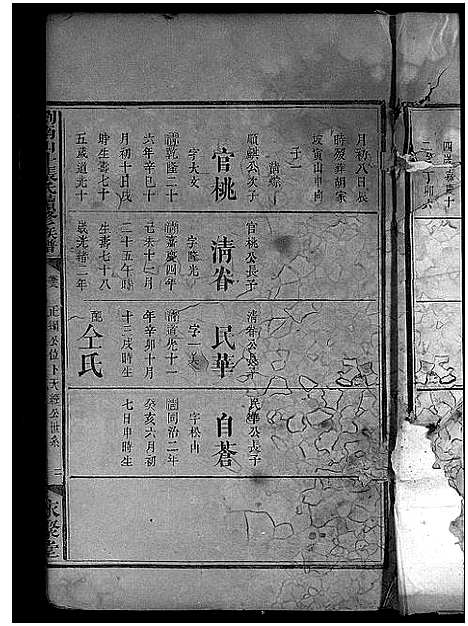 月初八日辰
時歿葬胡家
坡寅山申向
子一
清眷
順麒公次子
官桃
字大文
清乾隆二十
六年辛巳十
月初十日戌
時生壽七十
五歲道光十
官桃公長子
清眷
字隆光
清嘉慶四年
己未十一月
二十五午時
生壽七十八
歲光緒二年
清眷公長子
民華
字一美
清道光十一
年辛卯十月
十三戌時生
配
仝氏
民華公長子
自蒼
字松山
清同治二年
癸亥六月初
七日申時生
四歲嘉慶十
二年丁卯六